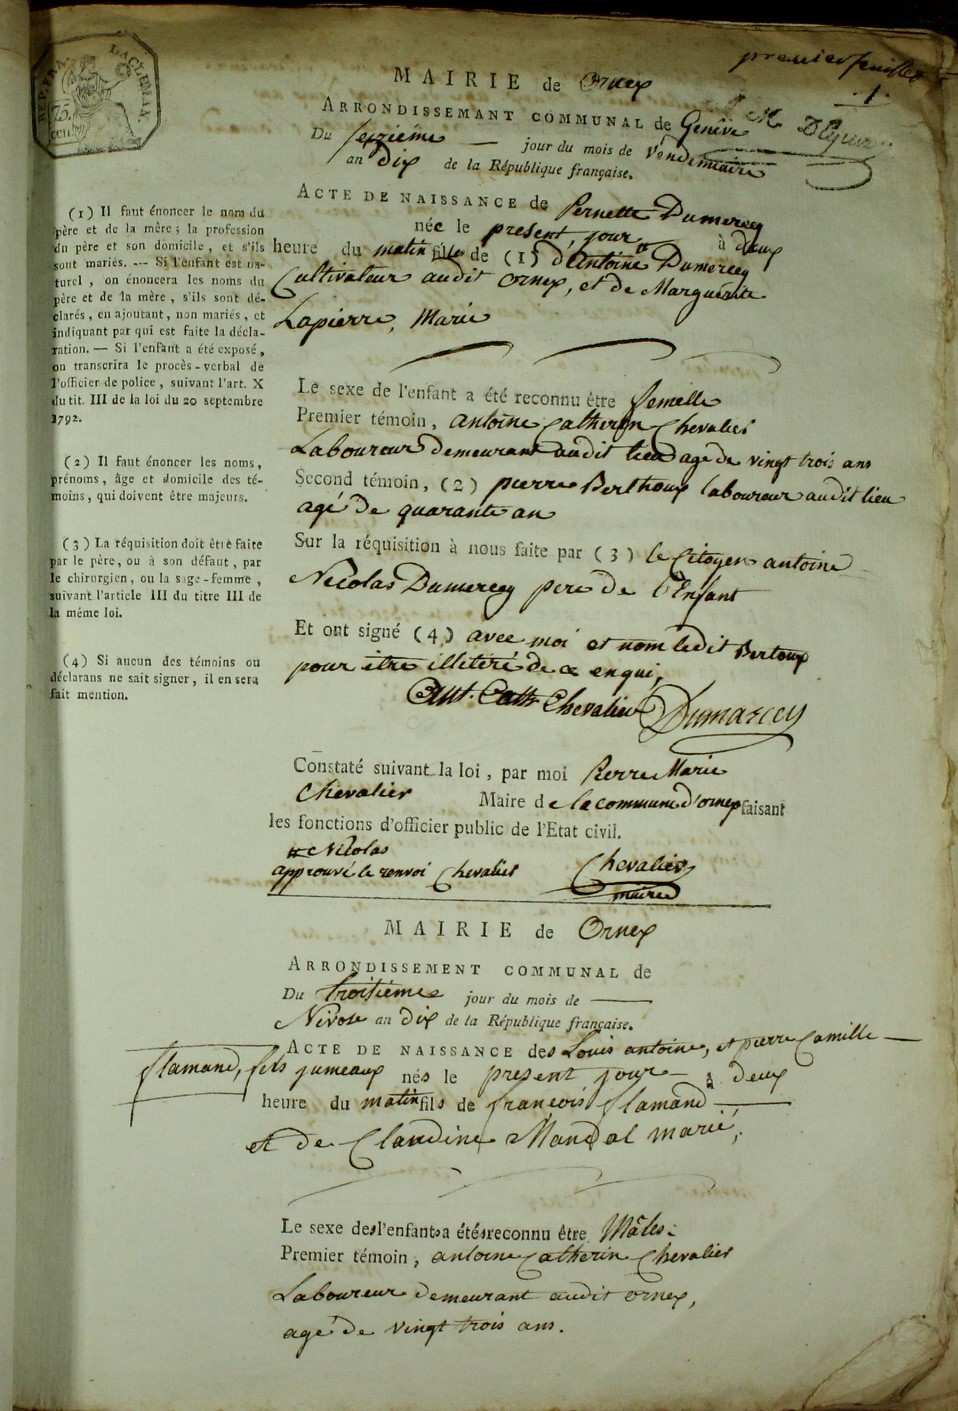 premier feuillet
1
REP. FRA.
75.
centimes
MAIRIE de Ornex
ARRONDISSEMANT COMMUNAL de Genève
Du seizième jour du mois de Vendemiaire
an Dix de la République française.
ACTE DE NAISSANCE de Pernette Dumercey
née le présent jour à deux
heure du matin fille de (1) d'antoine Dumercey
Cultivateur audit ornex, et de Marguerite
Lapierre, Marié
Le sexe de l'enfant a été reconnu être femelle
Premier témoin, antoine Catherin Chevalier
Laboureur demeurant audit lieu agé de vingt trois ans
Second témoin, (2) pierre Berthoux laboureur audit lieu
agé de quarante an
Sur la réquisition à nous faite par (3) le Citoyen antoine
Nicolas Dumercey pere de l'Enfant
Et ont signé (4) avec moi et nom ledit Bertoux
pour être illitéré de ce enqui,
Ant. Cath. Chevalier Dumarcey
Constaté suivant la loi, par moi Pierre Marie
Chevalier Maire de la commune d'ornex faisant
les fonctions d'officier public de l'Etat civil.
Nicolas
approuvé le renvoi Chevalier Chevalier
maire
(1) Il faut énoncer le nom du
père et de la mère; la profession
du père et son domicile, et s'ils
sont mariés. — Si l'enfant est na-
turel, on énoncera les noms du
père et de la mère, s'ils sont dé-
clarés, en ajoutant, non mariés, et
indiquant par qui est faite la décla-
ration. — Si l'enfant a été exposé,
on transcrira le procès-verbal de
l'officier de police, suivant l'art. X
du tit. III de la loi du 20 septembre
1792.
(2) Il faut énoncer les noms,
prénoms, âge et domicile des té-
moins, qui doivent être majeurs.
(3) La réquisition doit être faite
par le père, ou à son défaut, par
le chirurgien, ou la sage-femme,
suivant l'article III du titre III de
la même loi.
(4) Si aucun des témoins ou
déclarans ne sait signer, il en sera
fait mention.
MAIRIE de Ornex
ARRONDISSEMENT COMMUNAL de
Du troisième jour du mois de
Nivose an dix de la République française.
ACTE DE NAISSANCE des Louis antoine, et pierre Camille
flamand, fils jumeaux nés le présent jour à deux
heure du matin fils de françois flamand
et de Claudine Mandal marié,
Le sexe des l'enfants a étés reconnu être Mâles.
Premier témoin, antoine Catherin Chevalier
Laboureur demeurant audit ornex,
agé de vingt trois ans.